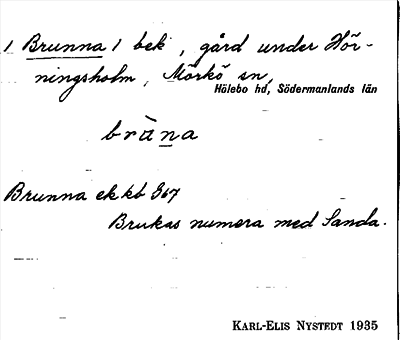 / Brunna / bek , gård under Hör-
ningsholm , Mörkö sn,
Hölebo hd, Södermanlands län
bràna
Brunna ek kb 867
Brukas numera med Sanda.
KARL-ELIS NYSTEDT 1935